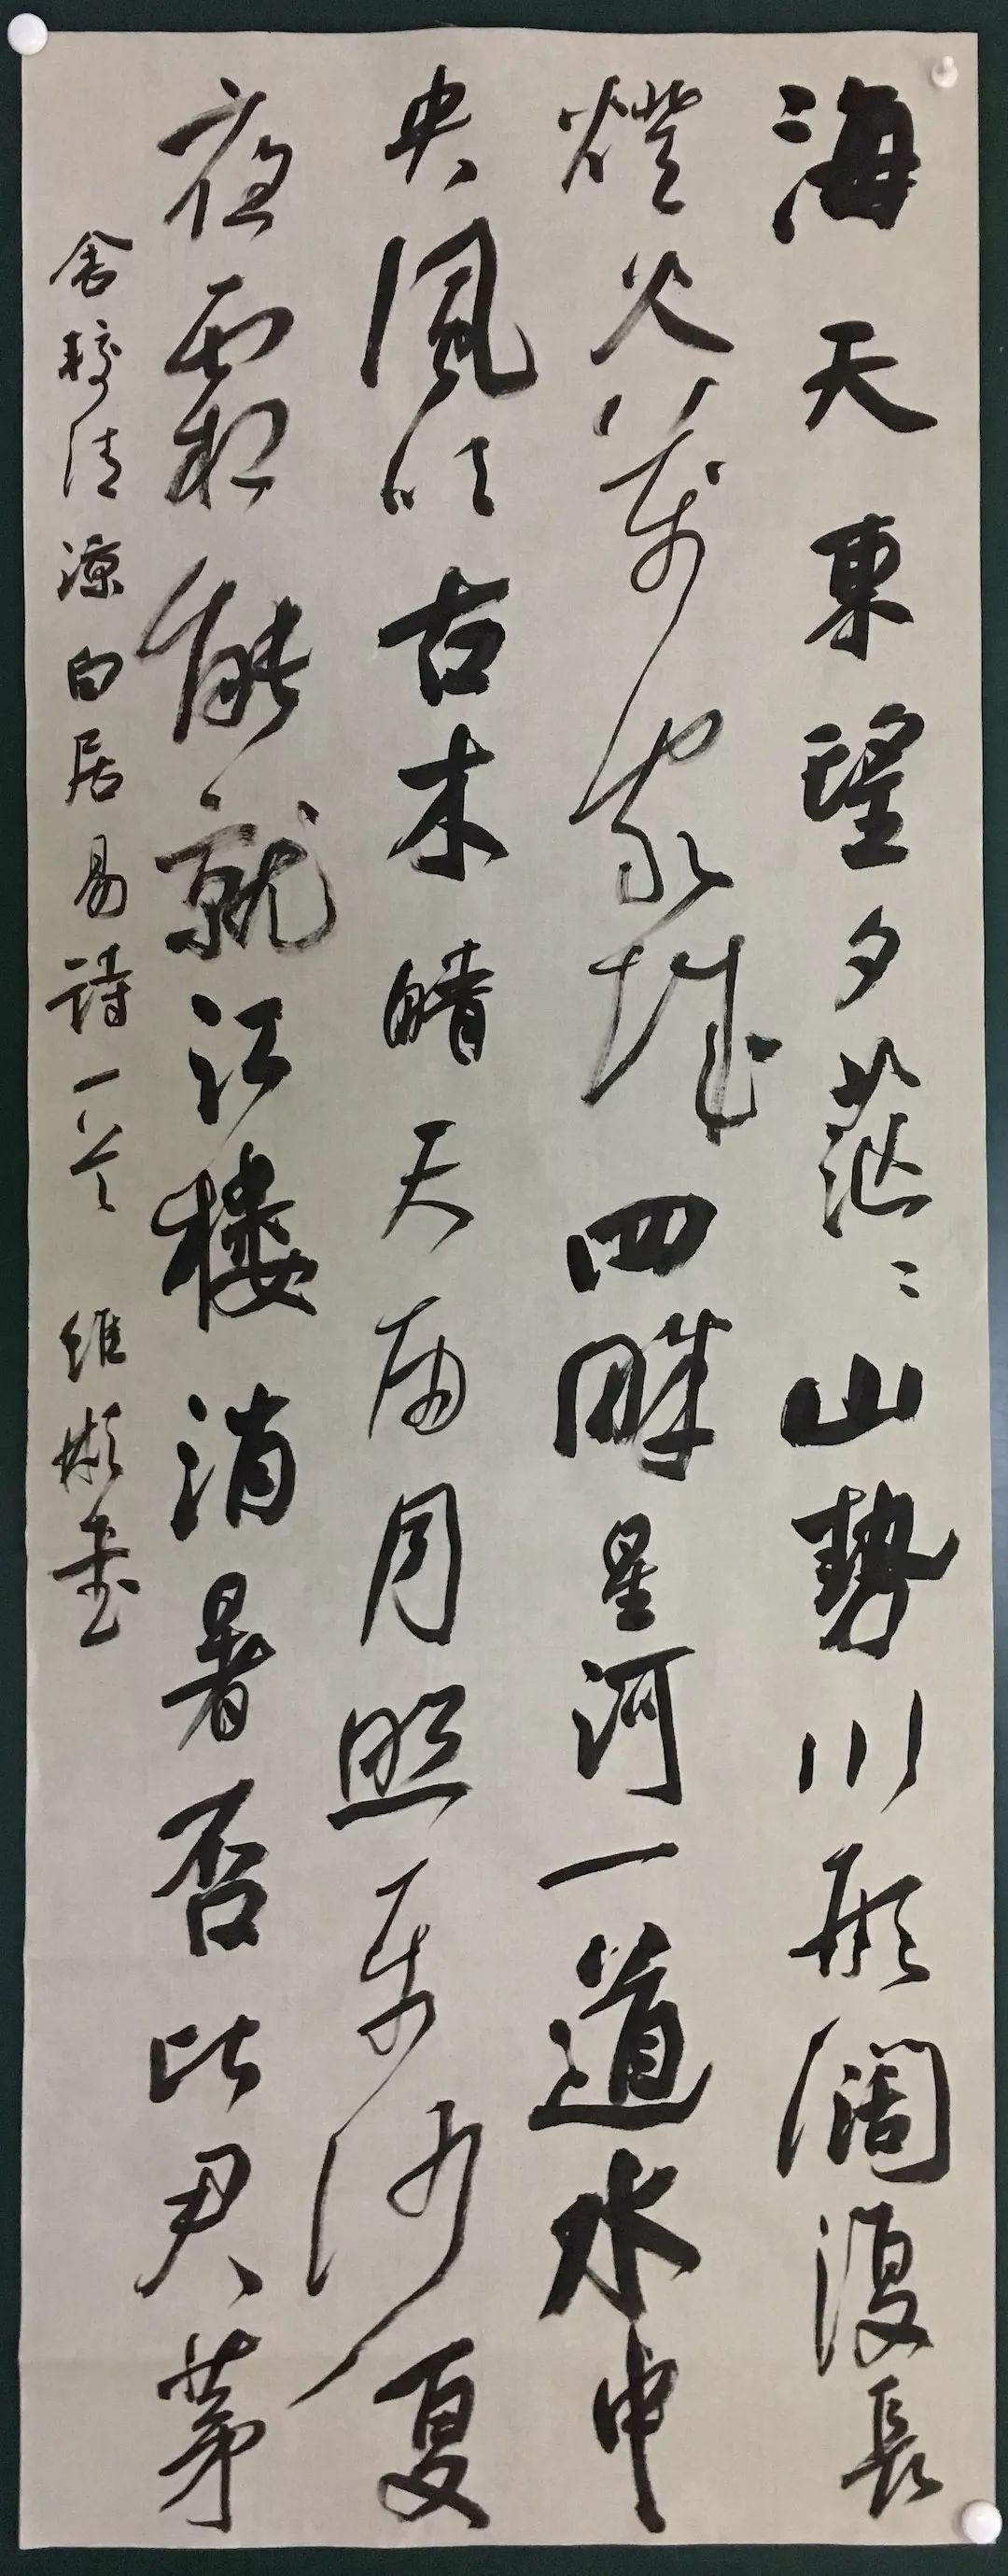 海天東望夕茫〻山勢川形闊復長
燈火萬家城四畔星河一道水中
央風吹古木晴天雨月照平沙夏
夜霜能就江樓消暑否比君茅
舍校清涼白居易詩一首 維書